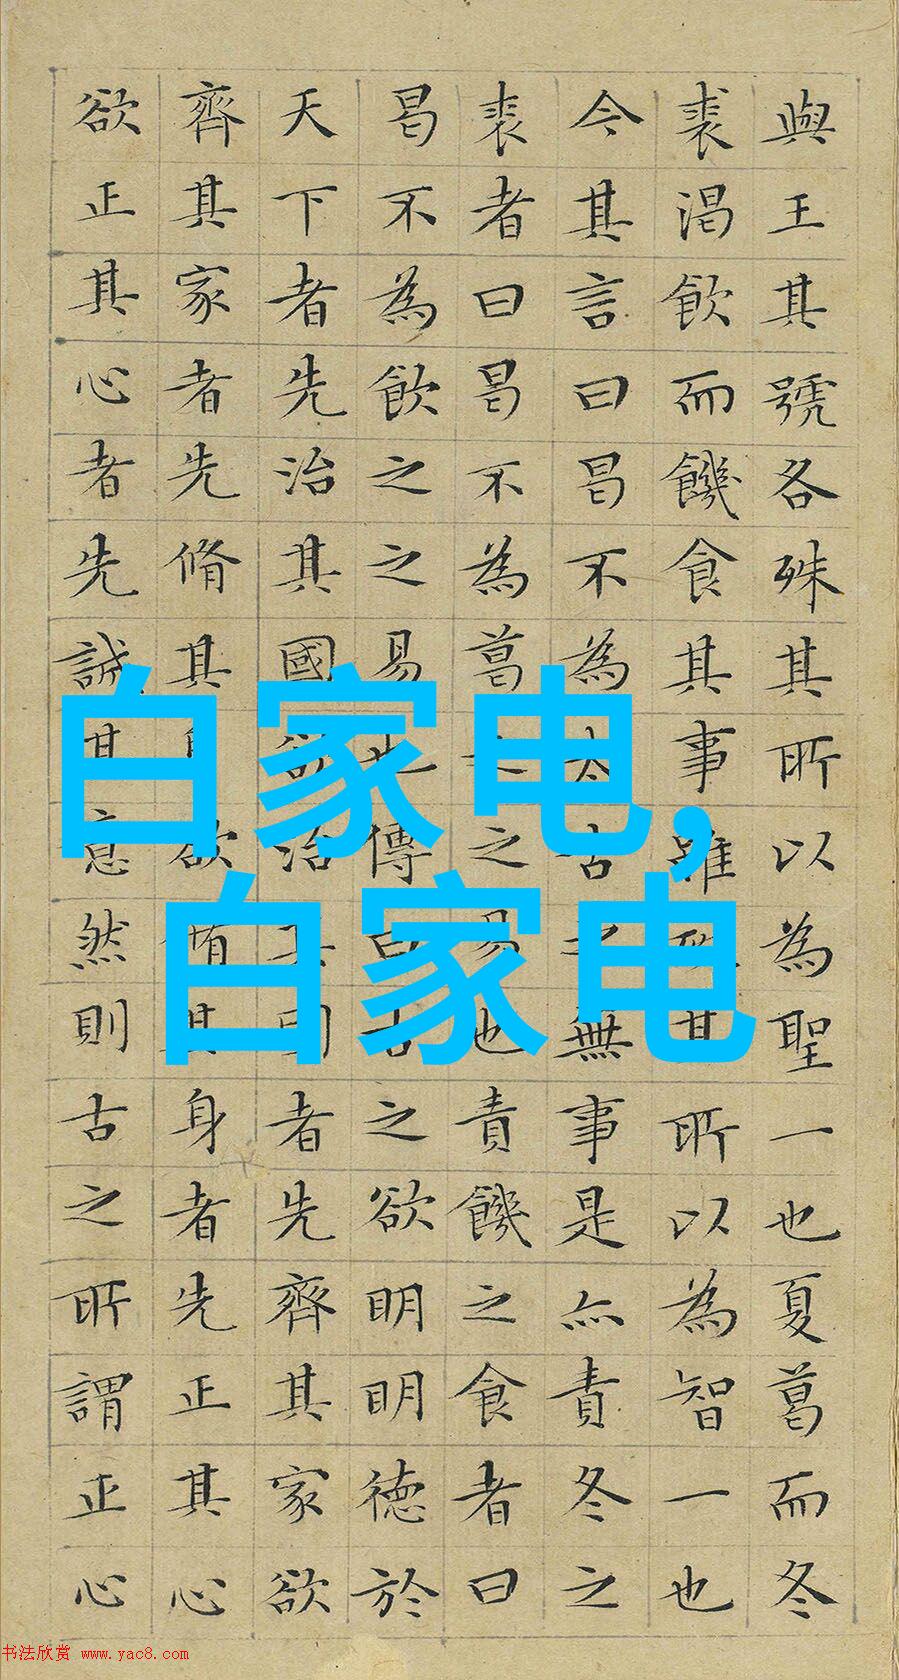 與王其號各殊其所以為聖一也夏葛而冬
裘渴飲而饑食其事雖殊其所以為智一也
今其言曰曷不為太古之無事是亦責冬之
裘者曰曷不為葛之之易也責饑之食者曰
曷不為飲之之易也傳曰古之欲明明德於
天下者先治其國欲治其國者先齊其家欲
齊其家者先脩其身欲脩其身者先正其心
欲正其心者先誠其意然則古之所謂正心
白家电,
白家电
书法欣赏 www.yac8.com